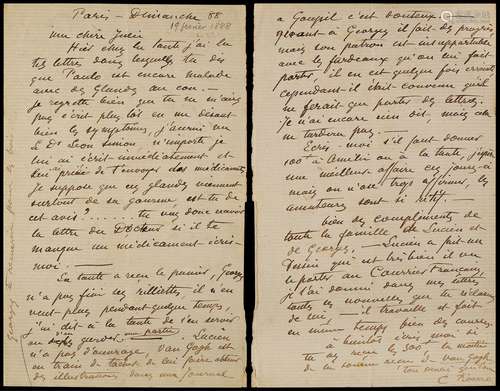 Paris - Dimanche 88
19 février 1888
ma chère Julie
Hier chez la tante j'ai lu
tes lettres dans lesquelles tu dis
que Paulo est encore malade
avec des Glandes au cou. -
Je regrette bien que tu ne m'aies
pas écrit plus tôt en me disant
bien les symptômes, j'aurai vu
le Dr Leon Simon n'importe je
lui ai écrit immédiatement et
bien prié de t'envoyer des médicaments
Je suppose que ces glandes viennent
surtout de sa gourme, est-tu de
cet avis? ....... tu vas donc recevoir
la lettre du Docteur si il te
manque un médicament écris-
moi. -
La tante a reçu le panier, Georges
n'a pas fini les rillettes, il n'en
veut plus pendant quelque temps,
j'ai dit à la tante de s'en servir
une partie. Lucien
n'a pas d'ouvrage Van Gogh est
en train de tâcher de lui faire obtenir
des illustrations dans un journal
à Goupil c'est douteux. -
Quant à Georges il fait des progrès
mais son patron est insupportable
avec les fardeaux qu'on lui fait
porter, il en est quelque fois éreinté
cependant il était convenu qu'il
ne ferait que porter des lettres.
Je n'ai encore rien dit, mais cela
ne tardera pas. -
Ecris-moi s'il faut donner
100 f à Amélie ou à la tante, j'espère
une meilleure affaire ces jours-ci
mais on n'ose trop affirmer, les
amateurs sont si rétifs. -
bien des compliments de
toute la famille de Lucien et
de Georges. - Lucien a fait un
Dessin qui est très bien il va
le porter au Courrier Français
Je t'ai donné dans mes lettres
toutes les nouvelles que tu réclames
de lui, - il travaille et fait
en même temps bien des courses.
à bientôt écris moi, si
tu as reçu ce soir la maitin
de van Gogh
ton mari
C. Pissarro